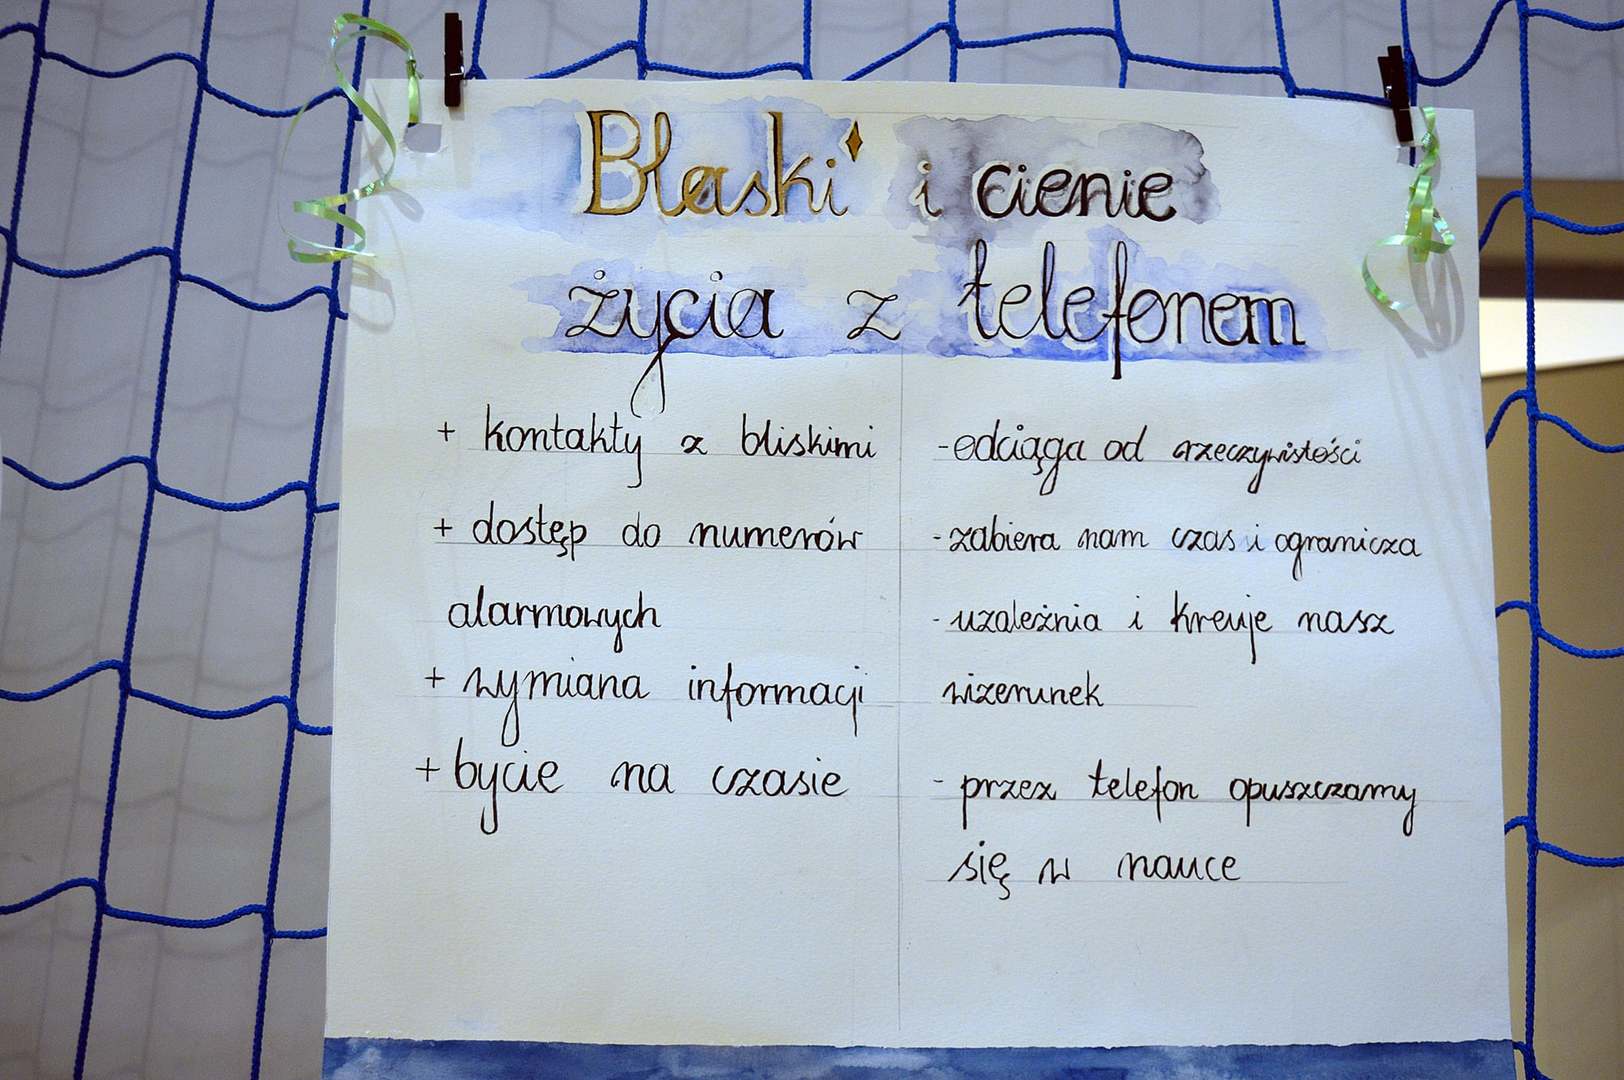 Blaski i cienie
życia z telefonem
+ kontakty z bliskimi
+ dostęp do numerów
alarmowych
+ wymiana informacji
+ bycie na czasie
- odciąga od rzeczywistości
- zabiera nam czas i ogranicza
- uzależnia i kreuje nasz
wizerunek
- przez telefon opuszczamy
się w nauce